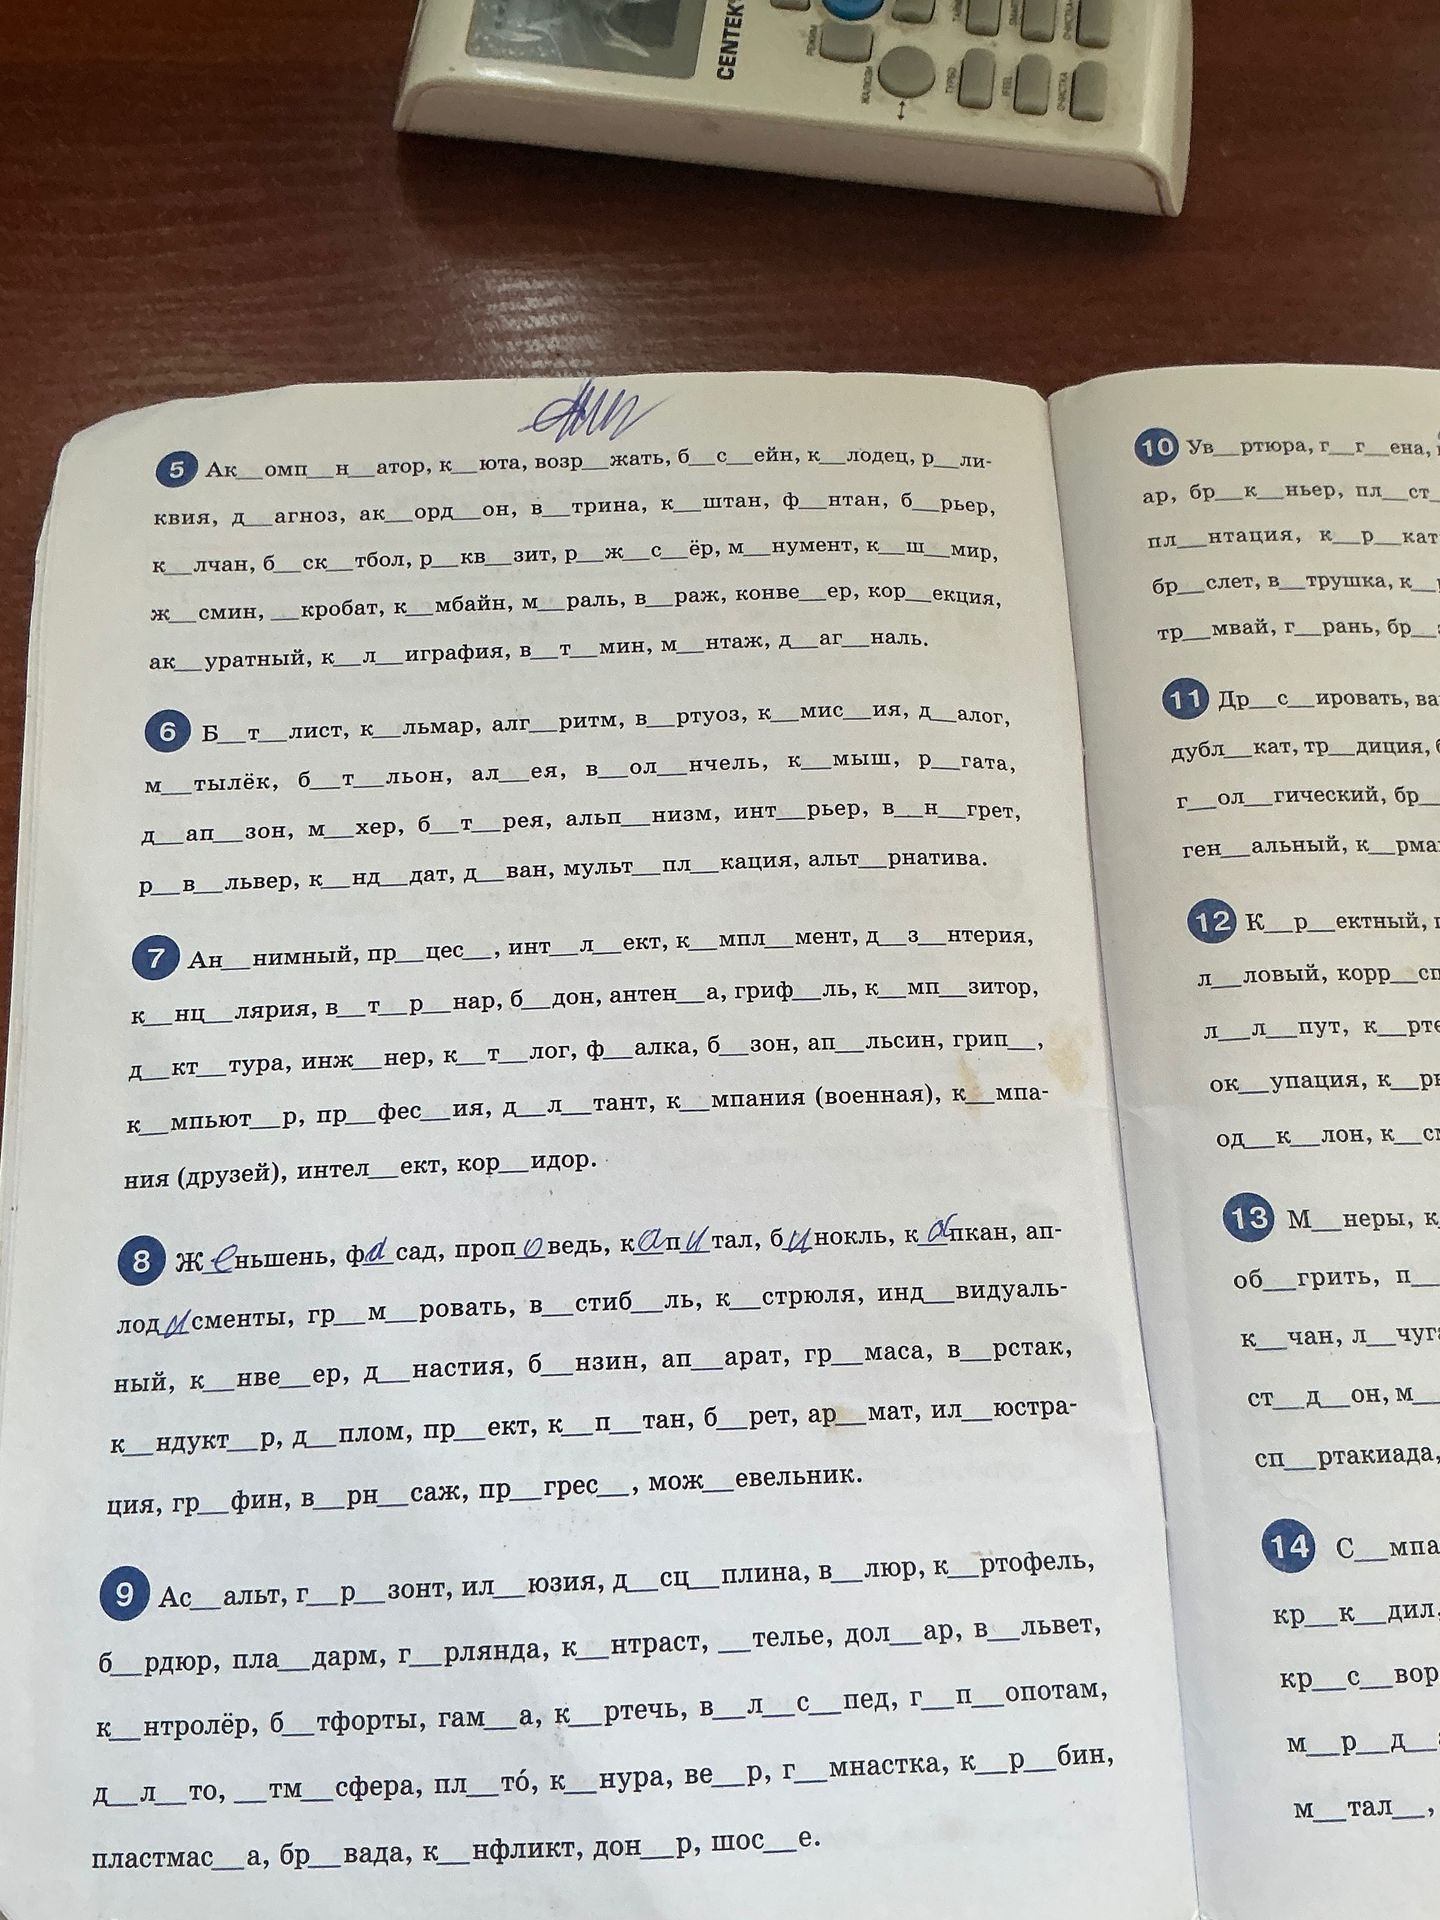 CENTEK
РЕЖИМ
ЖАЛЮЗИ
ТУРБО
IFEEL
ОЧИСТКА
5 Ак__омп__н__атор, к__юта, возр__жать, б__с__ейн, к__лодец, р__ли-
квия, д__агноз, ак__орд__он, в__трина, к__штан, ф__нтан, б__рьер,
к__лчан, б__ск__тбол, р__кв__зит, р__ж__с__ёр, м__нумент, к__ш__мир,
ж__смин, __кробат, к__мбайн, м__раль, в__раж, конве__ер, кор__екция,
ак__уратный, к__л__играфия, в__т__мин, м__нтаж, д__аг__наль.
6 Б__т__лист, к__льмар, алг__ритм, в__ртуоз, к__мис__ия, д__алог,
м__тылёк, б__т__льон, ал__ея, в__ол__нчель, к__мыш, р__гата,
д__ап__зон, м__хер, б__т__рея, альп__низм, инт__рьер, в__н__грет,
р__в__львер, к__нд__дат, д__ван, мульт__пл__кация, альт__рнатива.
7 Ан__нимный, пр__цес__, инт__л__ект, к__мпл__мент, д__з__нтерия,
к__нц__лярия, в__т__р__нар, б__дон, антен__а, гриф__ль, к__мп__зитор,
д__кт__тура, инж__нер, к__т__лог, ф__алка, б__зон, ап__льсин, грип__,
к__мпьют__р, пр__фес__ия, д__л__тант, к__мпания (военная), к__мпа-
ния (друзей), интел__ект, кор__идор.
8 Женьшень, фасад, проповедь, капитал, бинокль, капкан, ап-
лодисменты, гр__м__ровать, в__стиб__ль, к__стрюля, инд__видуаль-
ный, к__нве__ер, д__настия, б__нзин, ап__арат, гр__маса, в__рстак,
к__ндукт__р, д__плом, пр__ект, к__п__тан, б__рет, ар__мат, ил__юстра-
ция, гр__фин, в__рн__саж, пр__грес__, мож__евельник.
9 Ас__альт, г__р__зонт, ил__юзия, д__сц__плина, в__люр, к__ртофель,
б__рдюр, пла__дарм, г__рлянда, к__нтраст, __телье, дол__ар, в__львет,
к__нтролёр, б__тфорты, гам__а, к__ртечь, в__л__с__пед, г__п__опотам,
д__л__то, __тм__сфера, пл__то́, к__нура, ве__р, г__мнастка, к__р__бин,
пластмас__а, бр__вада, к__нфликт, дон__р, шос__е.
10 Ув__ртюра, г__г__ена,
ар, бр__к__ньер, пл__ст__
пл__нтация, к__р__кат
бр__слет, в__трушка, к__
тр__мвай, г__рань, бр__
11 Др__с__ировать, ва
дубл__кат, тр__диция,
г__ол__гический, бр__
ген__альный, к__рма
12 К__р__ектный,
л__ловый, корр__сп
л__л__пут, к__рте
ок__упация, к__рь
од__к__лон, к__см
13 М__неры, к
об__грить, п__
к__чан, л__чуга
ст__д__он, м__
сп__ртакиада,
14 С__мпа
кр__к__дил,
кр__с__вор
м__р__д__
м__тал__,